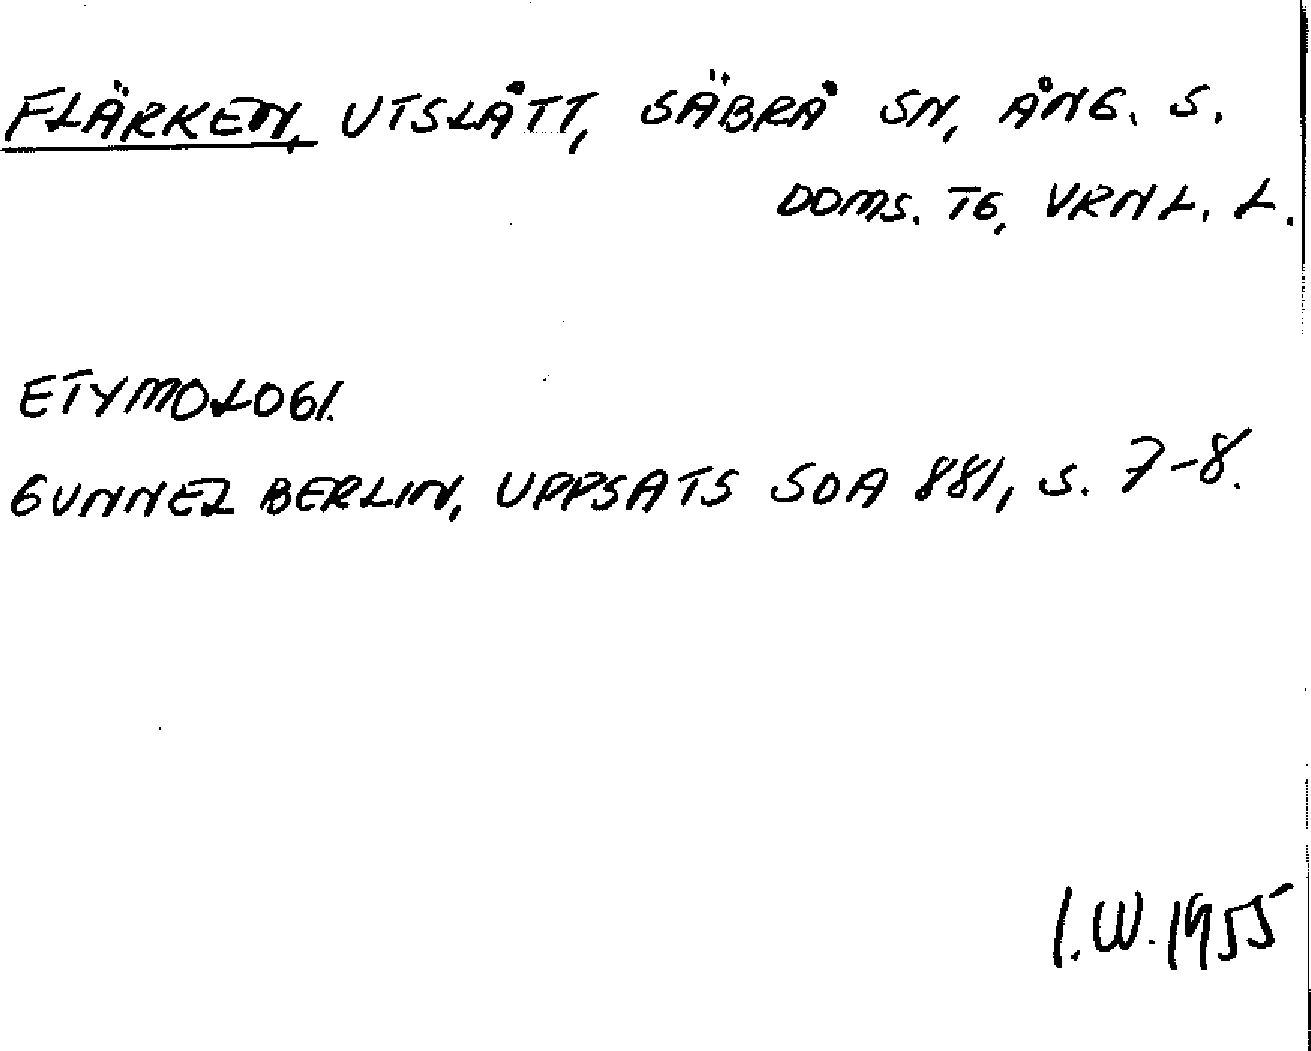 FLÄRKEN, UTSLÅTT, SÄBRÅ SN, ÅNG. S.
DOMS. TG, VRNL. L.
ETYMOLOGI.
GUNNEL BERLIN, UPPSATS SOA 881, S. 7-8.
I.W. 1955